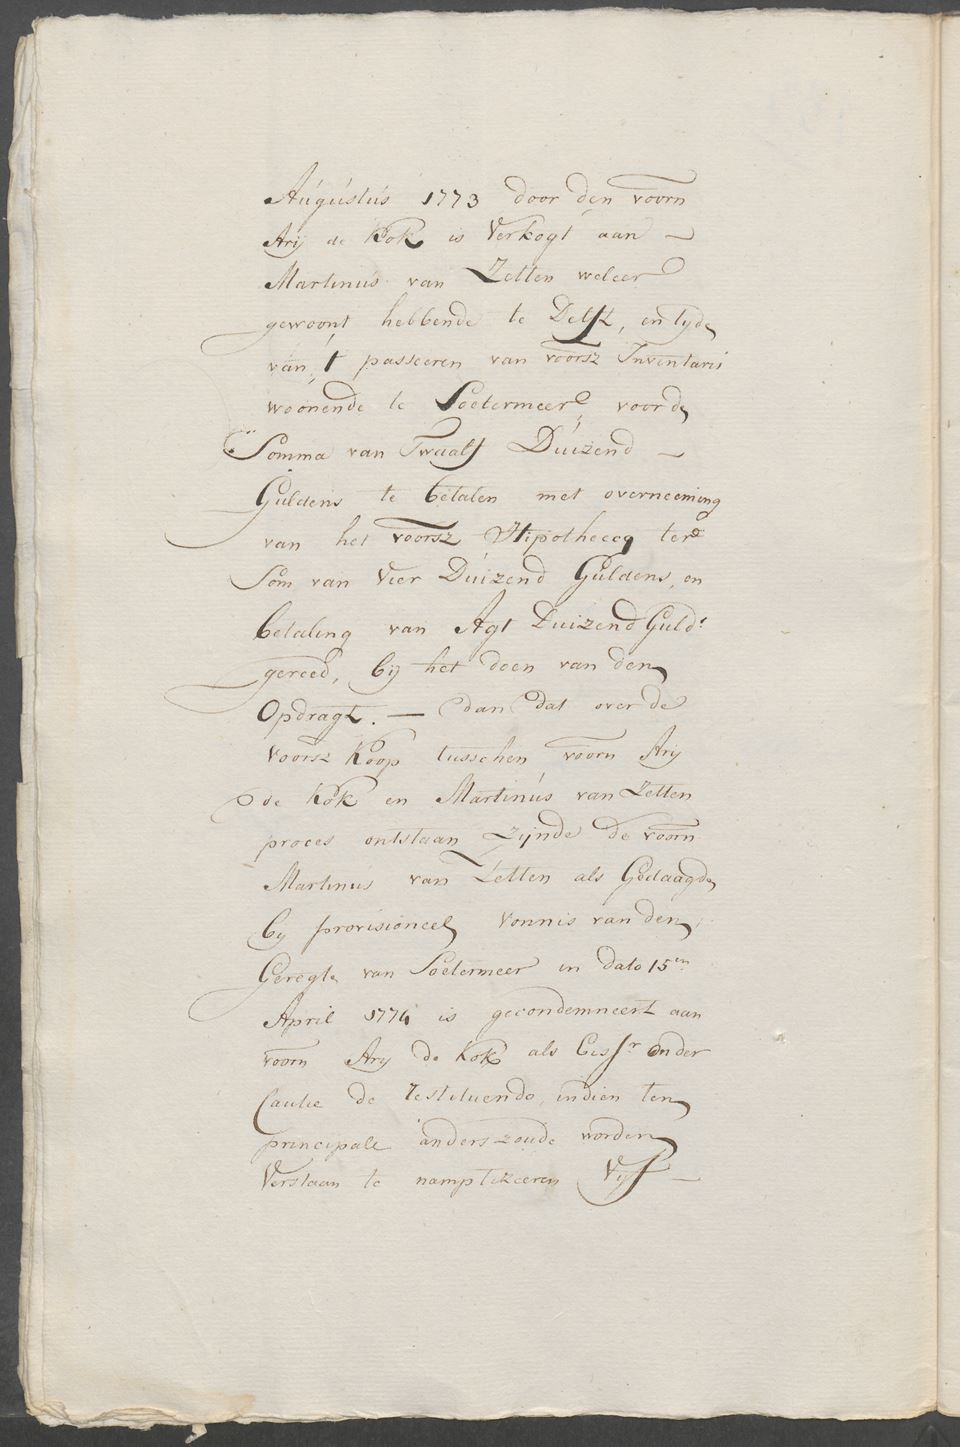 Augustus 1773 door den voorn
Arij de Kok is Verkogt aan –
Martinus van Zetten weleer
gewoont hebbende te Delft, en tyde
van 't passeeren van voorsz Inventaris
woonende te Soetermeer, voor de
Somma van Twaalf Duizend –
Guldens te betalen met overneeming
van het voorsz Hipotheecq ter
Som van Vier Duizend Guldens, en
betaling van Agt Duizend Guld.s
gereed, bij het doen van den
Opdragt. — dan dat over de
voorsz Koop tusschen voorn Arij
de Kok en Martinus van Zetten
proces ontstaan zijnde de voorn
Martinus van Zetten als Gedaagde
bij provisioneel vonnis van den
Geregte van Soetermeer in dato 15en
April 1774 is gecondemneert aan
voorn Arij de Kok als Eissr onder
Cautie de restituendo, indien ten
principale anders zoude worden
Verstaan te namptizeeren Vijf –